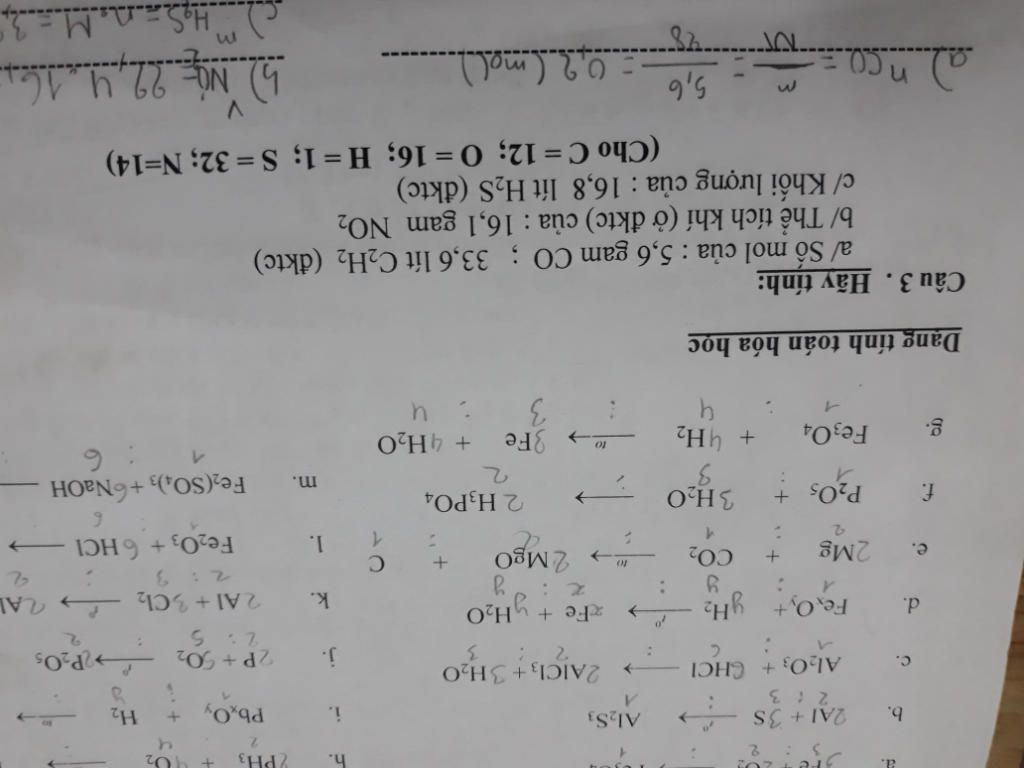 a. 3Fe + 2O2 → Fe3O4
3 : 2 : 1
b. 2Al + 3S —t°→ Al2S3
2 : 3 : 1
c. Al2O3 + 6HCl → 2AlCl3 + 3H2O
1 : 6 : 2 : 3
d. FexOy + yH2 —t°→ xFe + yH2O
1 : y : x : y
e. 2Mg + CO2 —to→ 2MgO + C
2 : 1 : 2 : 1
f. P2O5 + 3H2O → 2 H3PO4
1 : 3 : 2
g. Fe3O4 + 4H2 —to→ 3Fe + 4H2O
1 : 4 : 3 : 4
h. 2PH3 + 4O2 →
2 : 4
i. PbxOy + H2 —to→
1 : y :
j. 2P + 5O2 —t°→ 2P2O5
2 : 5 : 2
k. 2Al + 3Cl2 —t°→ 2Al
2 : 3 : 2
l. Fe2O3 + 6HCl →
1 : 6
m. Fe2(SO4)3 + 6NaOH
1 : 6 :
Dạng tính toán hóa học
Câu 3 . Hãy tính:
a/ Số mol của : 5,6 gam CO ; 33,6 lít C2H2 (đktc)
b/ Thể tích khí (ở đktc) của : 16,1 gam NO2
c/ Khối lượng của : 16,8 lít H2S (đktc)
(Cho C = 12; O = 16; H = 1; S = 32; N=14)
a) nCO = m/M = 5,6/28 = 0,2 (mol)
b) VNO2 = 22,4 . 16,
c) mH2S = n. M = 3